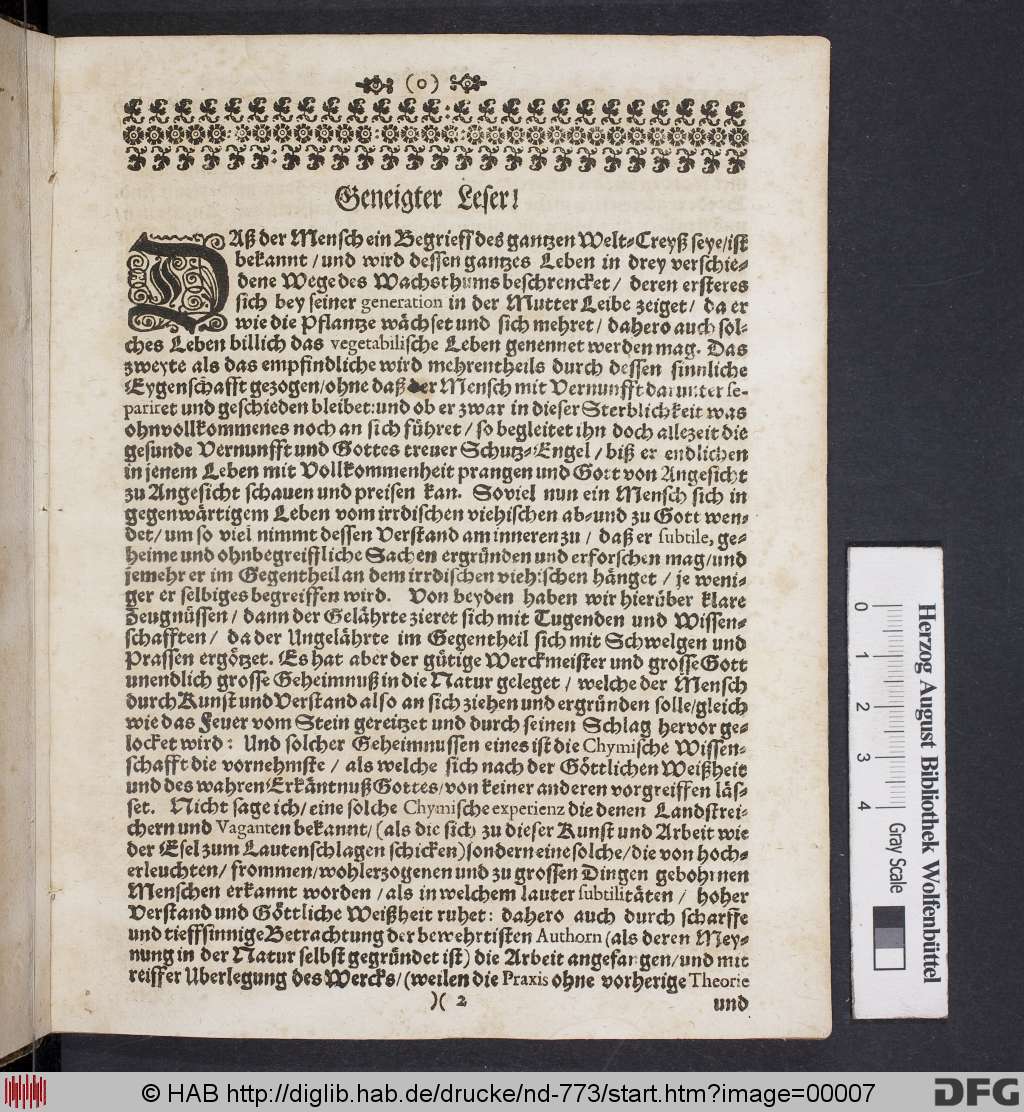 (o)
Geneigter Leser!
DAß der Mensch ein Begrieff des gantzen Welt-Creyß seye/ist
bekannt/und wird dessen gantzes Leben in drey verschie-
dene Wege des Wachsthums beschrencket/ deren ersteres
sich bey seiner generation in der Mutter Leibe zeiget/ da er
wie die Pflantze wächset und sich mehret/ dahero auch sol-
ches Leben billich das vegetabilische Leben genennet werden mag. Das
zweyte als das empfindliche wird mehrentheils durch dessen sinnliche
Eygenschafft gezogen/ohne daß der Mensch mit Vernunfft darunter se-
pariret und geschieden bleibet:und ob er zwar in dieser Sterblichkeit was
ohnvollkommenes noch an sich führet/ so begleitet ihn doch allezeit die
gesunde Vernunfft und Gottes treuer Schutz-Engel/ biß er endlichen
in jenem Leben mit Vollkommenheit prangen und Gott von Angesicht
zu Angesicht schauen und preisen kan. Soviel nun ein Mensch sich in
gegenwärtigem Leben vom irrdischen viehischen ab-und zu Gott wen-
det/um so viel nimmt dessen Verstand am inneren zu/ daß er subtile, ge-
heime und ohnbegreiffliche Sachen ergründen und erforschen mag/und
jemehr er im Gegentheil an dem irrdischen viehischen hänget/ je weni-
ger er selbiges begreiffen wird. Von beyden haben wir hierüber klare
Zeugnüssen/ dann der Gelährte zieret sich mit Tugenden und Wissen-
schafften/ da der Ungelährte im Gegentheil sich mit Schwelgen und
Prassen ergötzet. Es hat aber der gütige Werckmeister und grosse Gott
unendlich grosse Geheimnuß in die Natur geleget/ welche der Mensch
durch Kunst und Verstand also an sich ziehen und ergründen solle/gleich
wie das Feuer vom Stein gereitzet und durch seinen Schlag hervor ge-
locket wird: Und solcher Geheimnussen eines ist die Chymische Wissen-
schafft die vornehmste/ als welche sich nach der Göttlichen Weißheit
und des wahren Erkäntnuß Gottes/von keiner anderen vorgreiffen läs-
set. Nicht sage ich/eine solche Chymische experienz die denen Landstrei-
chern und Vaganten bekannt/(als die sich zu dieser Kunst und Arbeit wie
der Esel zum Lautenschlagen schicken)sondern eine solche/die von hoch-
erleuchten/frommen/wohlerzogenen und zu grossen Dingen gebohrnen
Menschen erkannt worden/als in welchem lauter subtilitäten/ hoher
Verstand und Göttliche Weißheit ruhet: dahero auch durch scharffe
und tieffsinnige Betrachtung der bewehrtisten Authorn (als deren Mey-
nung in der Natur selbst gegründet ist) die Arbeit angefangen/und mit
reiffer Uberlegung des Wercks/(weilen die Praxis ohne vorherige Theorie
)( 2
und
0 1 2 3 4
Herzog August Bibliothek Wolfenbüttel
Gray Scale
© HAB http://diglib.hab.de/drucke/nd-773/start.htm?image=00007
DFG